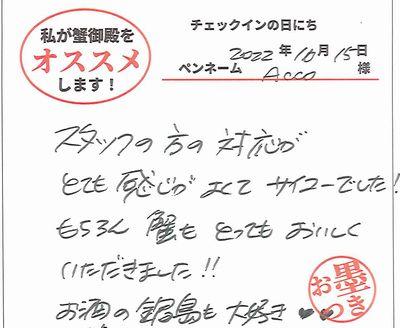 私が蟹御殿を
オススメ
します!
チェックインの日にち
2022年10月15日
ペンネーム Acco 様
スタッフの方の対応が
とても感じがよくてサイコーでした!
もちろん蟹もとってもおいしく
いただきました!!
お酒の鍋島も大好き♥♥
お墨つき